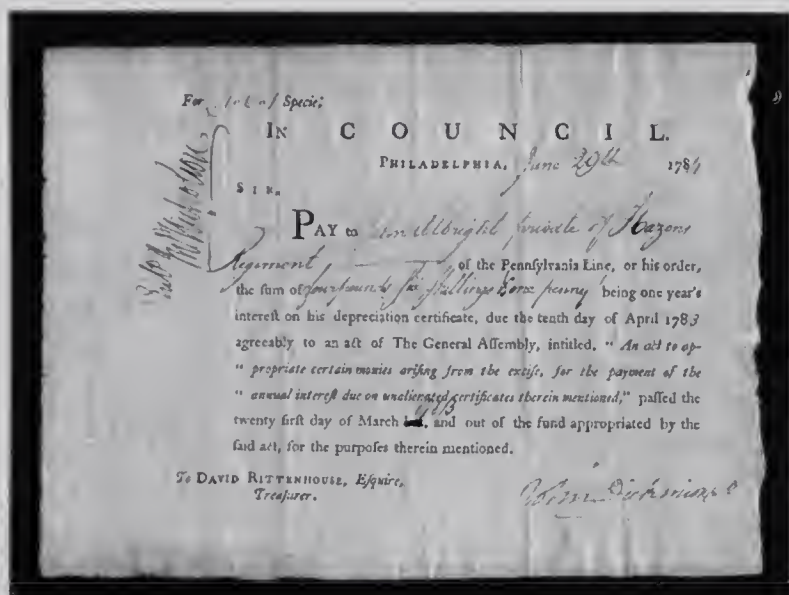 For £ 4 . 6 . 1 Specie:
IN COUNCIL.
PHILADELPHIA, June 29th 1784
SIR,
PAY to Albright private of Hazens
Regiment of the Pennsylvania Line, or his order,
the sum of four pounds Six Shillings & one penny being one year's
intereſt on his depreciation certificate, due the tenth day of April 1783
agreeably to an act of The General Aſſembly, intitled, " An act to ap-
" propriate certain monies ariſing from the exciſe, for the payment of the
" annual intereſt due on unalienated certificates therein mentioned," paſſed the
twenty firſt day of March 1783, and out of the fund appropriated by the
ſaid act, for the purpoſes therein mentioned.
To DAVID RITTENHOUSE, Eſquire,
Treaſurer.
John Dickinson
Nicholson